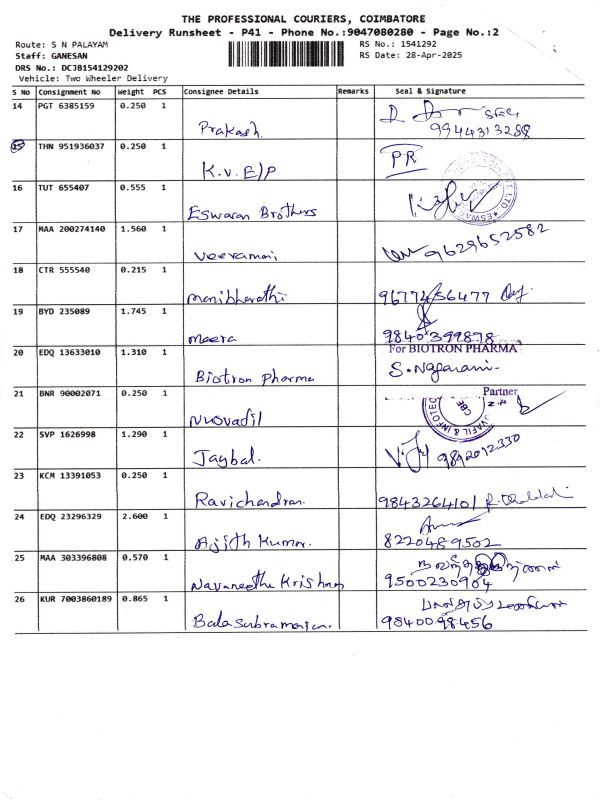 THE PROFESSIONAL COURIERS, COIMBATORE
Delivery Runsheet - P41 - Phone No.:9047080280 - Page No.:2
Route: S N PALAYAM
Staff: GANESAN
DRS No.: DCJB154129202
Vehicle: Two Wheeler Delivery
RS No.: 1541292
RS Date: 28-Apr-2025
S No Consignment No Weight PCS Consignee Details Remarks Seal & Signature
14 PGT 6385159 0.250 1 Prakash 9944313288
15 THN 951936037 0.250 1 K.V. E/P PR
16 TUT 655407 0.555 1 Eswaran Brothers
17 MAA 200274140 1.560 1 Veeramani 9629652582
18 CTR 555540 0.215 1 manibharathi 9677456477
19 BYD 235089 1.745 1 meera 9840399878
20 EDQ 13633010 1.310 1 Biotron pharma For BIOTRON PHARMA
S. Nagarani
Partner
21 BNR 90002071 0.250 1 Nuovadil
22 SVP 1626998 1.290 1 Jaybal. 9892012330
23 KCM 13391053 0.250 1 Ravichandran. 9843264101
24 EDQ 23296329 2.600 1 Ajith Kumar. 8220489502
25 MAA 303396808 0.570 1 Navaneetha Krishnan 9500230904
26 KUR 7003860189 0.865 1 Balasubramanian. 9840098456